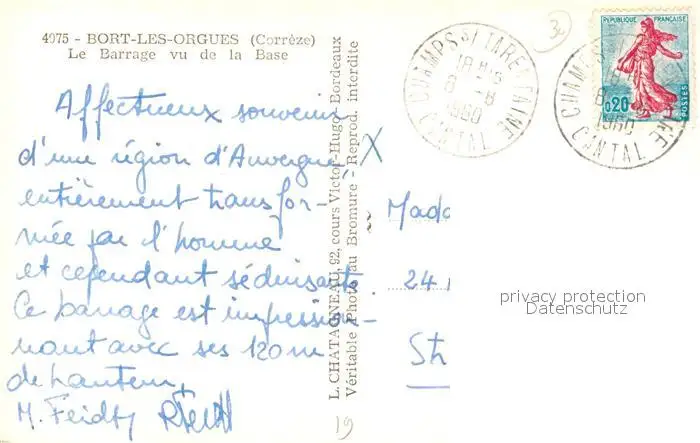 4975 - BORT-LES-ORGUES (Corrèze)
Le Barrage vu de la Base
Affectueux souvenir
d'une région d'Auvergne X
entièrement transfor-
mée par l'homme
et cependant séduisante.
Ce barrage est impression-
nant avec ses 120 m
de hauteur.
L. CHATAGNEAU, 92, cours Victor Hugo - Bordeaux
Véritable Photo au Bromure - Reprod. interdite
19
30
CHAMPS S/ TARENTAINE
18H
8 - 8
1960
CANTAL
REPUBLIQUE FRANÇAISE
0,20
POSTES
CHAMPS S/
8
1960
CANTAL
Mada
24
St
privacy protection
Datenschutz